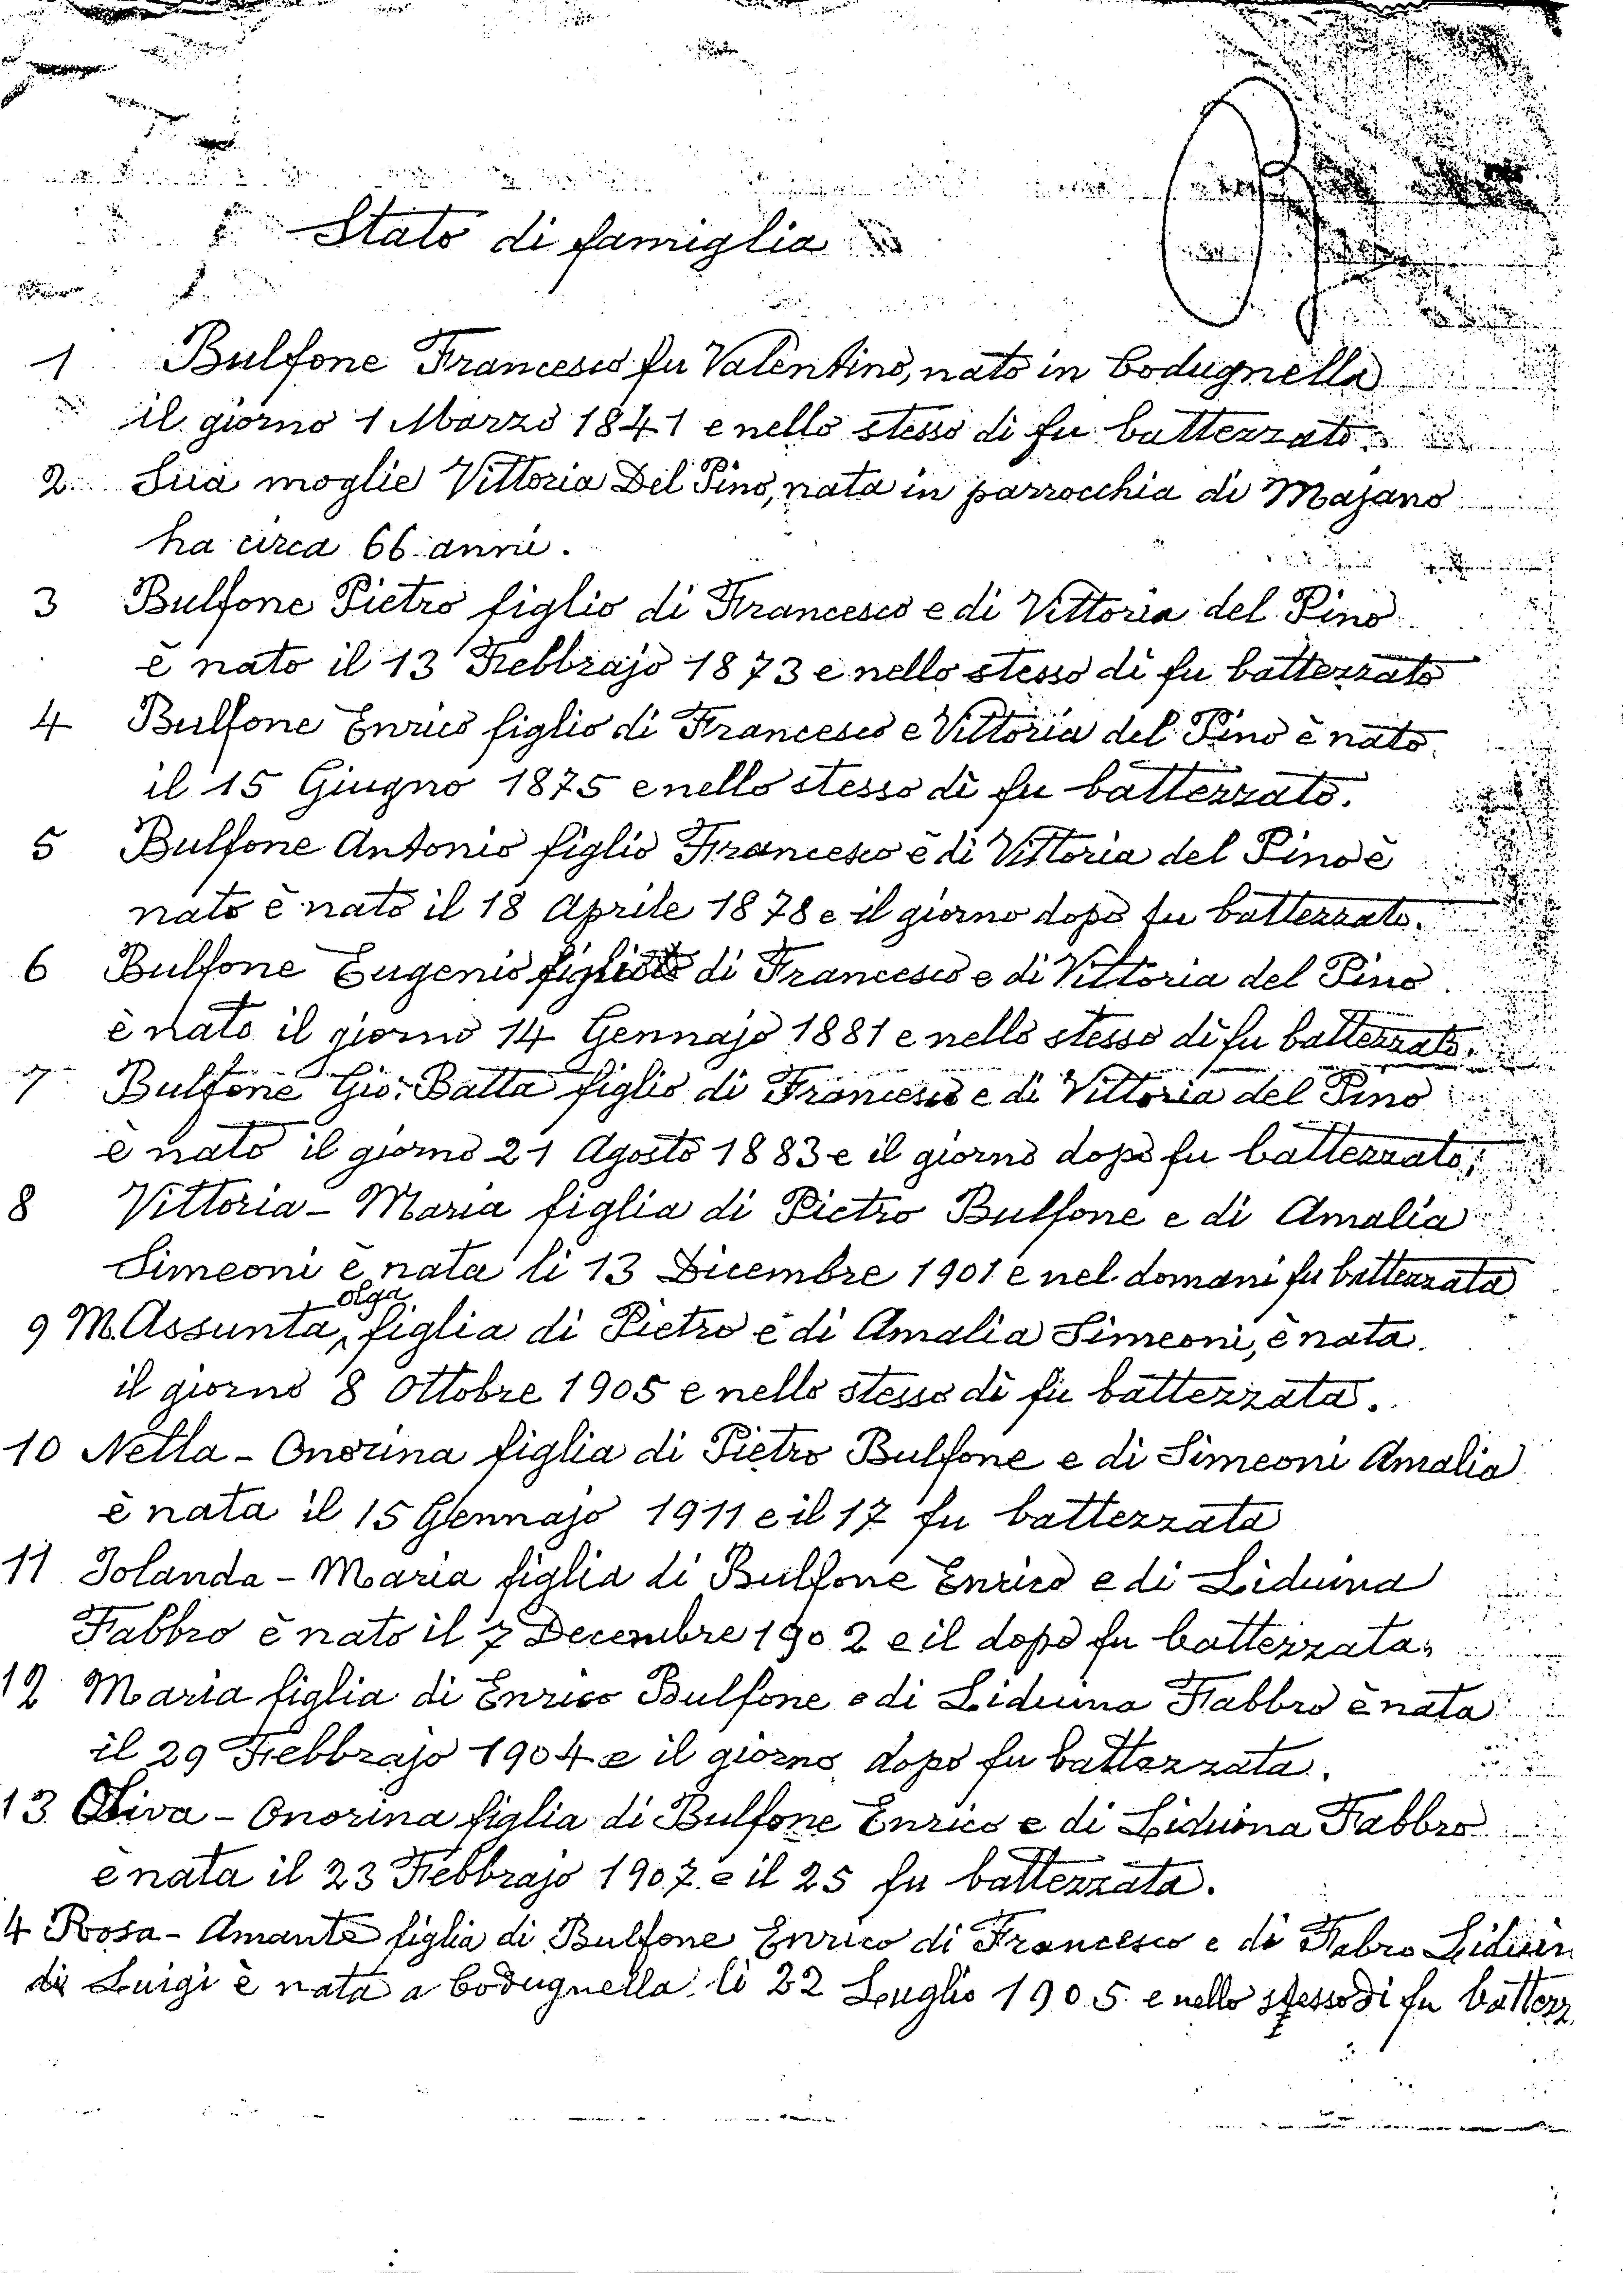 Stato di famiglia
1 Bulfone Francesco fu Valentino, nato in Codugnella
il giorno 1 Marzo 1841 e nello stesso di fu battezzato.
2 Sua moglie Vittoria Del Pino, nata in parrocchia di Majano
ha circa 66 anni.
3 Bulfone Pietro figlio di Francesco e di Vittoria del Pino
è nato il 13 Febbrajo 1873 e nello stesso dì fu battezzato
4 Bulfone Enrico figlio di Francesco e Vittoria del Pino è nato
il 15 Giugno 1875 e nello stesso dì fu battezzato.
5 Bulfone Antonio figlio Francesco e di Vittoria del Pino è
nato è nato il 18 Aprile 1878 e il giorno dopo fu battezzato.
6 Bulfone Eugenio figlio di Francesco e di Vittoria del Pino
è nato il giorno 14 Gennajo 1881 e nello stesso dì fu battezzato.
7 Bulfone Gio: Batta figlio di Francesco e di Vittoria del Pino
è nato il giorno 21 Agosto 1883 e il giorno dopo fu battezzato,
8 Vittoria - Maria figlia di Pietro Bulfone e di Amalia
Simeoni è nata li 13 Dicembre 1901 e nel domani fu battezzata
olga
9 M. Assunta, figlia di Pietro e di Amalia Simeoni, è nata
il giorno 8 Ottobre 1905 e nello stesso dì fu battezzata.
10 Nella - Onorina figlia di Pietro Bulfone e di Simeoni Amalia
è nata il 15 Gennajo 1911 e il 17 fu battezzata
11 Jolanda - Maria figlia di Bulfone Enrico e di Liduina
Fabbro è nato il 7 Decembre 1902 e il dopo fu battezzata,
12 Maria figlia di Enrico Bulfone e di Liduina Fabbro è nata
il 29 Febbrajo 1904 e il giorno dopo fu battezzata.
13 Oliva - Onorina figlia di Bulfone Enrico e di Liduina Fabbro
è nata il 23 Febbrajo 1907 e il 25 fu battezzata.
4 Rosa - Amante figlia di Bulfone Enrico di Francesco e di Fabro Liduin
di Luigi è nata a Codugnella li 22 Luglio 1905 e nello stesso di fu battezz